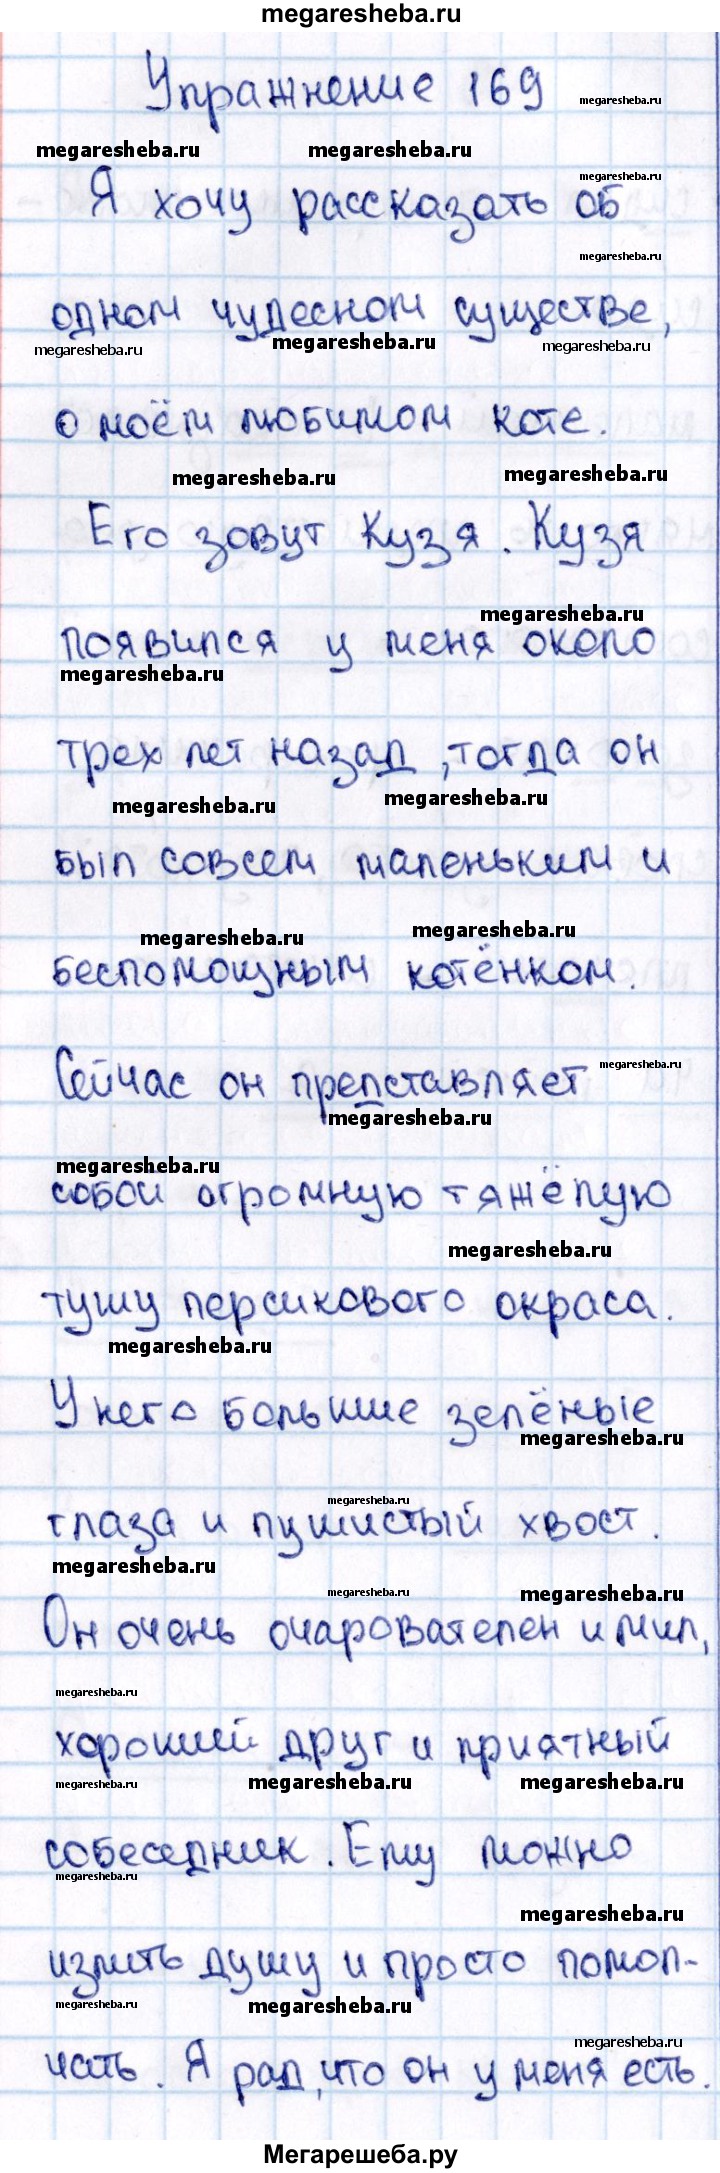 megaresheba.ru
Упражнение 169
megaresheba.ru
megaresheba.ru megaresheba.ru
megaresheba.ru
Я хочу рассказать об
megaresheba.ru
одном чудесном существе,
megaresheba.ru megaresheba.ru megaresheba.ru
о моём любимом коте.
megaresheba.ru megaresheba.ru
Его зовут Кузя. Кузя
megaresheba.ru
появился у меня около
megaresheba.ru
трех лет назад, тогда он
megaresheba.ru megaresheba.ru
был совсем маленьким и
megaresheba.ru megaresheba.ru
беспомощным котёнком.
Сейчас он препставляет
megaresheba.ru
megaresheba.ru
megaresheba.ru
собой огромную тяжёлую
megaresheba.ru
тушу персикового окраса.
megaresheba.ru
У него большие зелёные
megaresheba.ru
megaresheba.ru
глаза и пушистый хвост.
megaresheba.ru
megaresheba.ru megaresheba.ru
Он очень очарователен и мил,
megaresheba.ru
хороший друг и приятный
megaresheba.ru megaresheba.ru megaresheba.ru
собеседник. Ему можно
megaresheba.ru
megaresheba.ru
излить душу и просто помол-
megaresheba.ru megaresheba.ru
megaresheba.ru
чать. Я рад, что он у меня есть.
Мегарешеба.ру